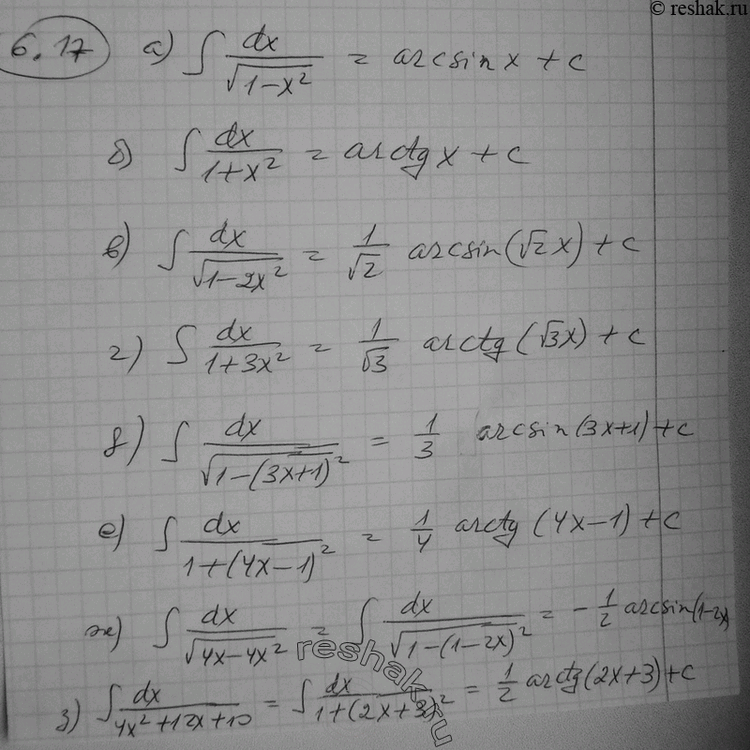 © reshak.ru
6.17 а) ∫ dx/√(1-x²) = arcsin x + c
б) ∫ dx/(1+x²) = arctg x + c
в) ∫ dx/√(1-2x²) = 1/√2 arcsin(√2x) + c
г) ∫ dx/(1+3x²) = 1/√3 arctg(√3x) + c
д) ∫ dx/√(1-(3x+1)²) = 1/3 arcsin(3x+1) + c
е) ∫ dx/(1+(4x-1)²) = 1/4 arctg(4x-1) + c
ж) ∫ dx/√(4x-4x²) = ∫ dx/√(1-(1-2x)²) = -1/2 arcsin(1-2x)
з) ∫ dx/(4x²+12x+10) = ∫ dx/(1+(2x+3)²) = 1/2 arctg(2x+3) + c
reshak.ru